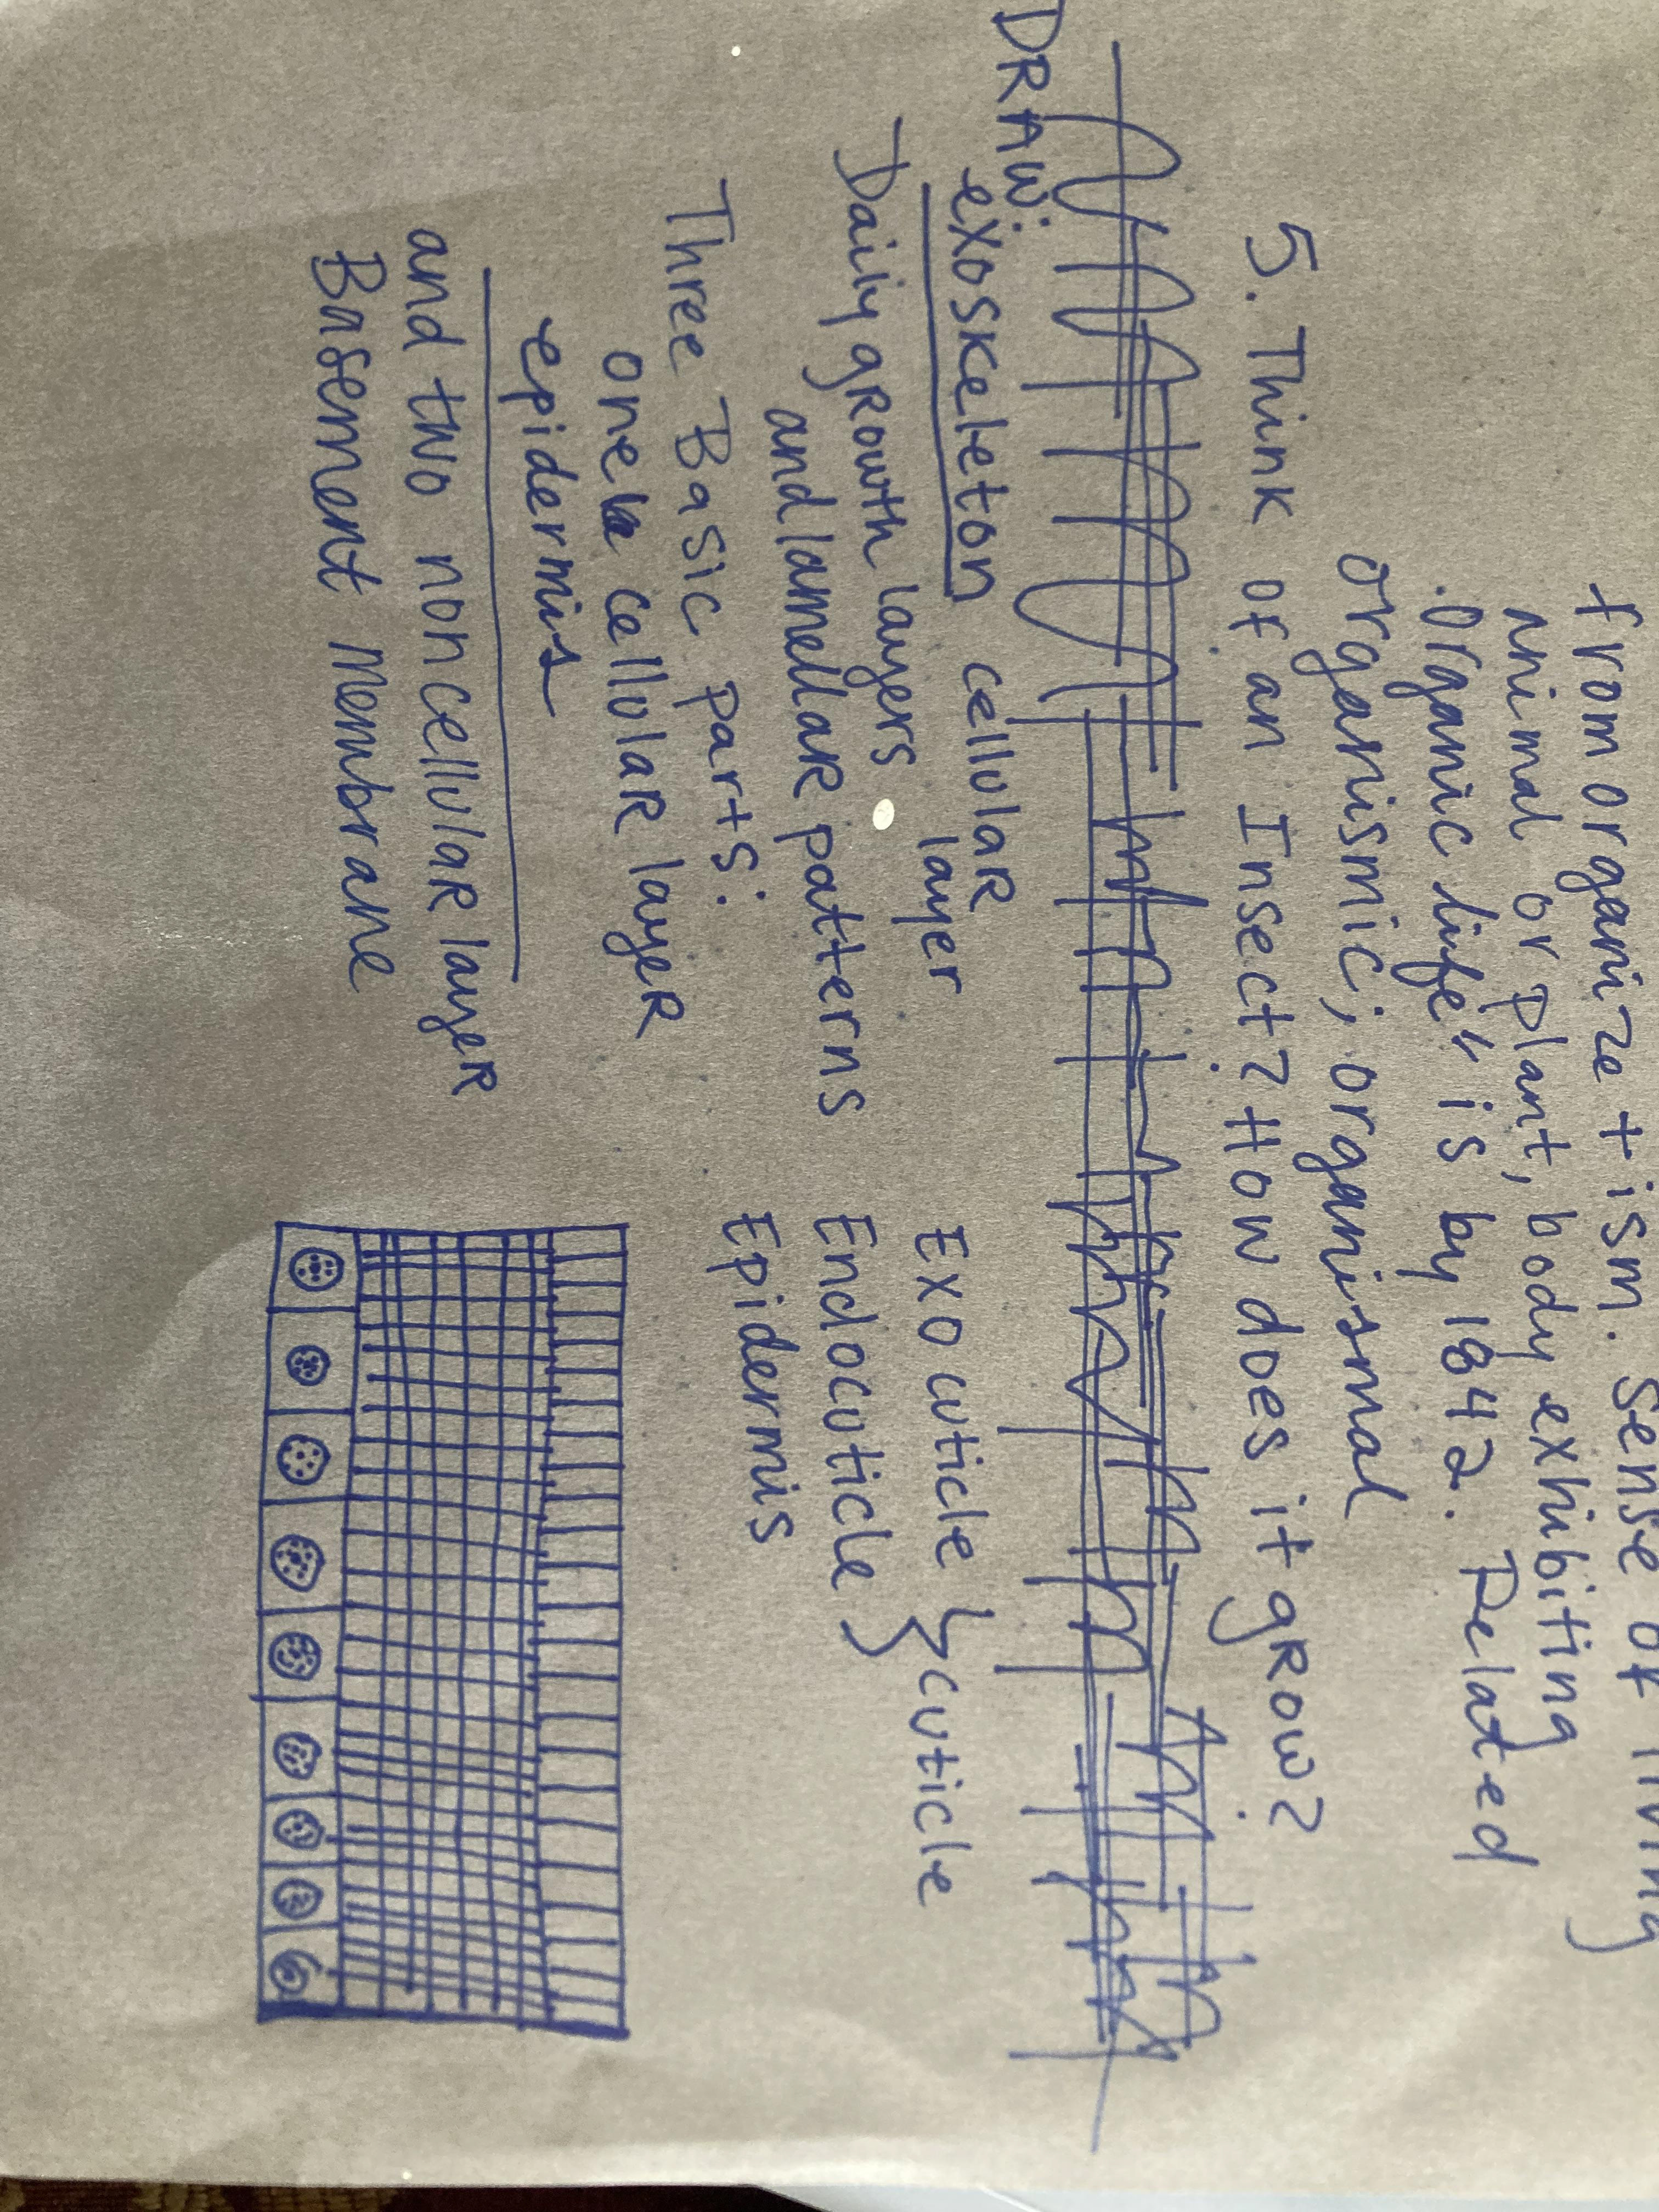 from organize + ism. Sense of living
animal or plant, body exhibiting
organic life" is by 1842. Related
organismic; organismal
5. Think of an Insect? How does it grow?
DRAW:
exoskeleton cellular layer
Daily growth layers
and lamellar patterns
Three Basic parts:
one cellular layer
epidermis
and two noncellular layer
Basement Membrane
Exocuticle } cuticle
Endocuticle
Epidermis